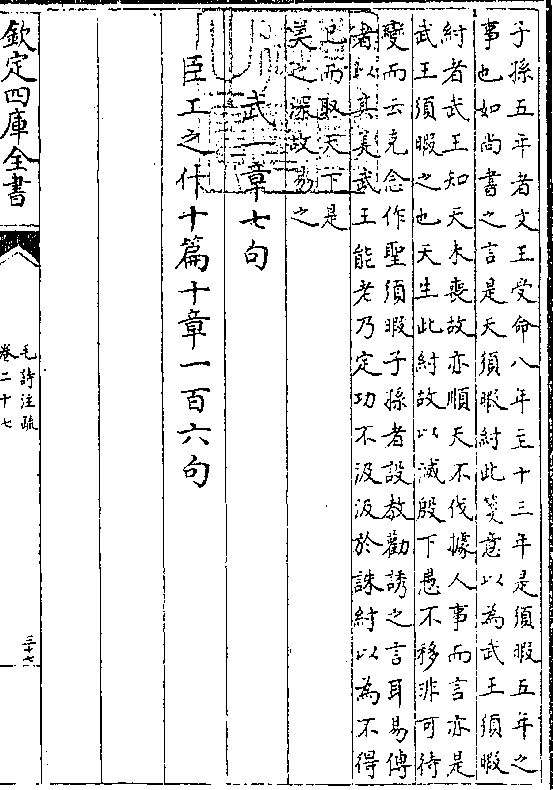 子孫五年者文王受命八年至十三年是須暇五年之
事也如尚書之言是天須暇紂此箋意以為武王須暇
紂者武王知天未喪故亦順天不伐據人事而言亦是
武王須暇之也天生此紂故以滅殷下愚不移非可待
變而云克念作聖須暇子孫者設教勸誘之言耳易傳
者以其美武王能老乃定功不汲汲於誅紂以為不得
已而取天下是
美之深故易之
武一章七句
臣工之什十篇十章一百六句
欽定四庫全書
毛詩注疏
卷二十七
三十七